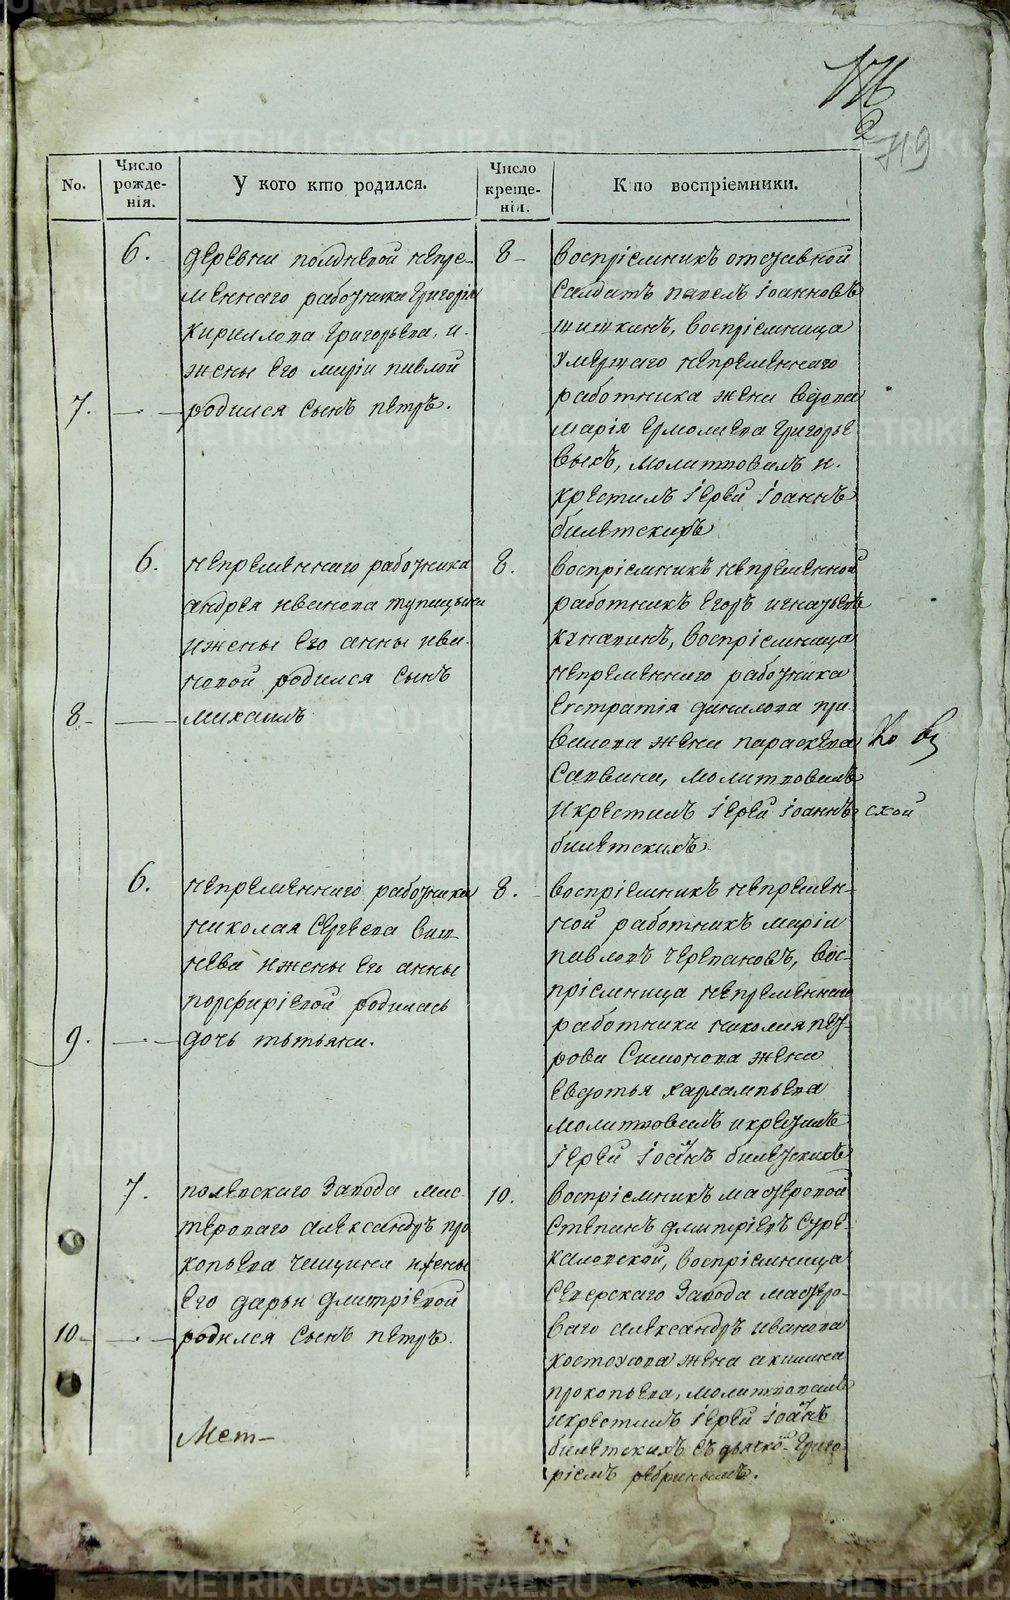 176
2
719
No.
Число рожде-нія.
У кого кто родился.
Число креще-нія.
Кто воспріемники.
7.
6.
деревни полдневой непре-
меннаго работника Григорія
Кириллова Григорьева, и
жены его Маріи Павлой
родился сынъ Петръ.
8
воспріемникъ отставной
солдатъ Павелъ Іоанновъ
Шишкинъ, воспріемница
умершаго непременнаго
работника жена вдова
Марія Ермолаева Григорье
выхъ, молитвовалъ и
крестилъ Іерей Іоаннъ
Билетскихъ
8
6.
непременнаго работника
Андрея Иванова Тупицына
и жены его Анны Ива-
новой родился сынъ
Михаилъ
8.
воспріемникъ непременной
работникъ Егоръ Игнатьевъ
воспріемница
непременнаго работника
Евстратія Данилова при
валова жена Параскева
Саввина, молитвовалъ
и крестилъ Іерей Іоаннъ
Билетскихъ
Ко
ской
9.
6.
непременнаго работника
Николая Сергеева
нева и жены его Анны
Порфиріевой родилась
дочь Татьяна.
8.
воспріемникъ непремен-
ной работникъ Марій
Павловъ Черепановъ, вос-
пріемница непременнаго
работника Николая Пет-
рова Симонова жена
Евдотья Харлампьева
молитвовалъ и крестилъ
Іерей Іоаннъ Билетскихъ
10
7.
Полевскаго завода мас-
тероваго Александръ Про
копьева Чащина и жены
его Дарьи Дмитріевой
родился сынъ Петръ.
10.
воспріемникъ мастеровой
Степанъ Дмитріевъ
воспріемница
Северскаго завода мастеро-
ваго Александръ Иванова
Костоусова жена Акилина
Прокопьева, молитвовалъ
и крестилъ Іерей Іоаннъ
Билетскихъ съ дьячкомъ Григо
ріемъ Ребринымъ.
Мет-
METRIKI.GASO-URAL.RU